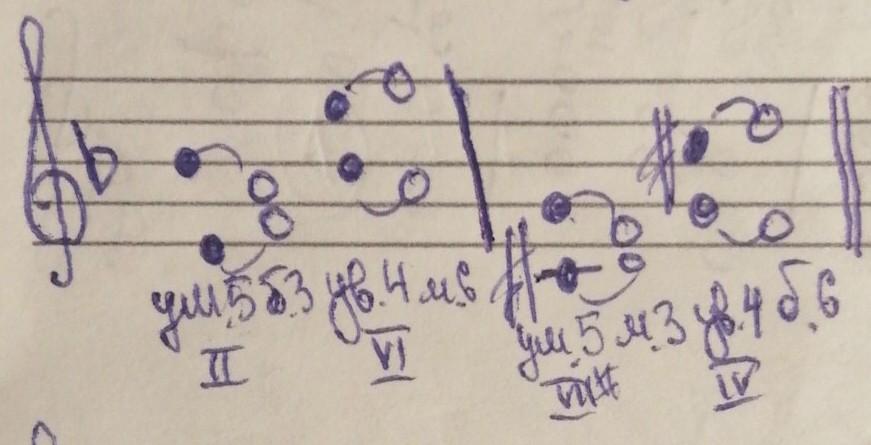 ум.5 б.3 ув.4 м.6
II VI
ум.5 м.3 ув.4 б.6
VII# IV